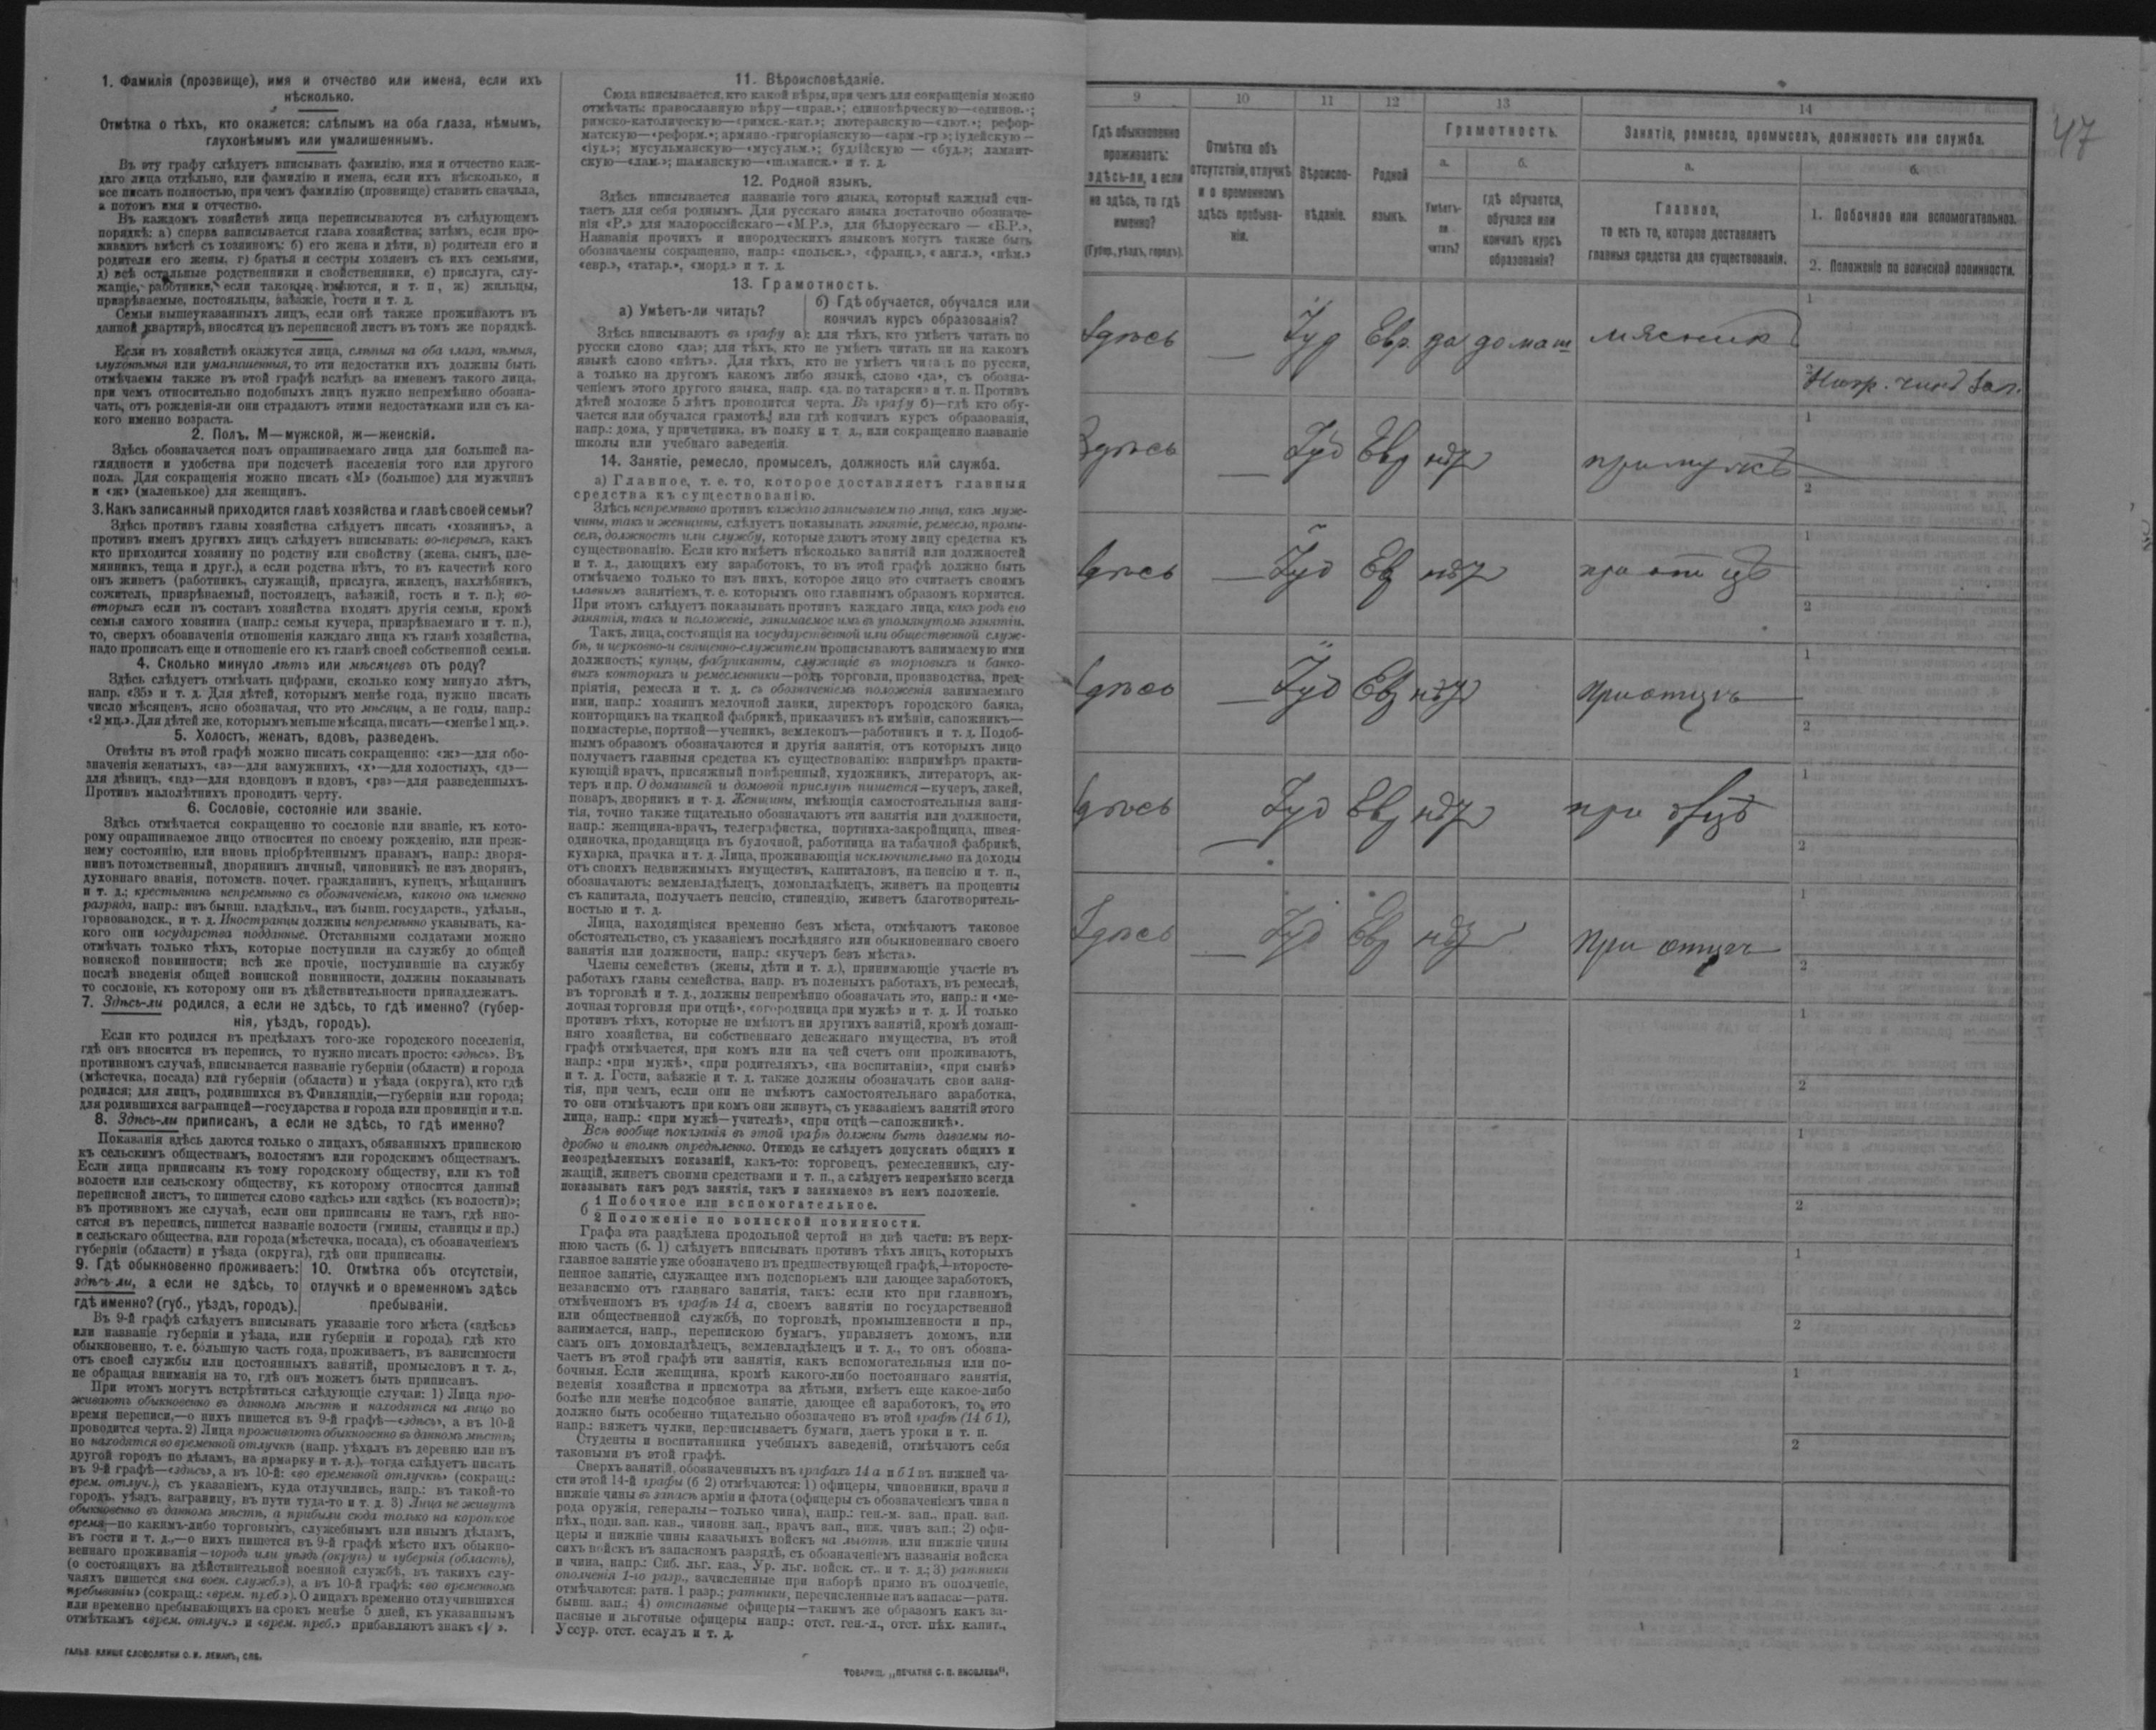 1. Фамилія (прозвище), имя и отчество или имена, если ихъ
нѣсколько.
Отмѣтка о тѣхъ, кто окажется: слѣпымъ на оба глаза, нѣмымъ,
глухонѣмымъ или умалишеннымъ.
Въ эту графу слѣдуетъ вписывать фамилію, имя и отчество каж-
даго лица отдѣльно, или фамилію и имена, если ихъ нѣсколько, и
все писать полностью, при чемъ фамилію (прозвище) ставить сначала,
а потомъ имя и отчество.
Въ каждомъ хозяйствѣ лица переписываются въ слѣдующемъ
порядкѣ: а) сперва записывается глава хозяйства; затѣмъ, если про-
живаютъ вмѣстѣ съ хозяиномъ: б) его жена и дѣти, в) родители его и
родители его жены, г) братья и сестры хозяевъ съ ихъ семьями,
д) всѣ остальные родственники и свойственники, е) прислуга, слу-
жащіе, работники, если таковые имѣются, и т. п, ж) жильцы,
призрѣваемые, постояльцы, заѣзжіе, гости и т. д.
Семьи вышеуказанныхъ лицъ, если онѣ также проживаютъ въ
данной квартирѣ, вносятся въ переписной листъ въ томъ же порядкѣ.
Если въ хозяйствѣ окажутся лица, слѣпыя на оба глаза, нѣмыя,
глухонѣмыя или умалишенныя, то эти недостатки ихъ должны быть
отмѣчаемы также въ этой графѣ вслѣдъ за именемъ такого лица,
при чемъ относительно подобныхъ лицъ нужно непремѣнно обозна-
чать, отъ рожденія-ли они страдаютъ этими недостатками или съ ка-
кого именно возраста.
2. Полъ, М—мужской, ж—женскій.
Здѣсь обозначается полъ опрашиваемаго лица для большей на-
глядности и удобства при подсчетѣ населенія того или другого
пола. Для сокращенія можно писать «М» (большое) для мужчинъ
и «ж» (маленькое) для женщинъ.
3. Какъ записанный приходится главѣ хозяйства и главѣ своей семьи?
Здѣсь противъ главы хозяйства слѣдуетъ писать «хозяинъ», а
противъ именъ другихъ лицъ слѣдуетъ вписывать: во-первыхъ, какъ
кто приходится хозяину по родству или свойству (жена, сынъ, пле-
мянникъ, теща и друг.), а если родства нѣтъ, то въ качествѣ кого
онъ живетъ (работникъ, служащій, прислуга, жилецъ, нахлѣбникъ,
сожитель, призрѣваемый, постоялецъ, заѣзжій, гость и т. п.); во-
вторыхъ если въ составъ хозяйства входятъ другія семьи, кромѣ
семьи самого хозяина (напр.: семья кучера, призрѣваемаго и т. п.),
то, сверхъ обозначенія отношенія каждаго лица къ главѣ хозяйства,
надо прописать еще и отношеніе его къ главѣ своей собственной семьи.
4. Сколько минуло лѣтъ или мѣсяцевъ отъ роду?
Здѣсь слѣдуетъ отмѣчать цифрами, сколько кому минуло лѣтъ,
напр. «35» и т. д. Для дѣтей, которымъ менѣе года, нужно писать
число мѣсяцевъ, ясно обозначая, что это мѣсяцы, а не годы, напр.:
«2 мц.». Для дѣтей же, которымъ меньше мѣсяца, писать—«менѣе 1 мц.».
5. Холостъ, женатъ, вдовъ, разведенъ.
Отвѣты въ этой графѣ можно писать сокращенно: «ж»—для обо-
значенія женатыхъ, «з»—для замужнихъ, «х»—для холостыхъ, «д»—
для дѣвицъ, «вд»—для вдовцовъ и вдовъ, «рз»—для разведенныхъ.
Противъ малолѣтнихъ проводить черту.
6. Сословіе, состояніе или званіе.
Здѣсь отмѣчается сокращенно то сословіе или званіе, къ кото-
рому опрашиваемое лицо относится по своему рожденію, или преж-
нему состоянію, или вновь пріобрѣтеннымъ правамъ, напр.: дворя-
нинъ потомственный, дворянинъ личный, чиновникъ не изъ дворянъ,
духовнаго званія, потомств. почет. гражданинъ, купецъ, мѣщанинъ
и т. д.; крестьянинъ непремѣнно съ обозначеніемъ, какого онъ именно
разряда, напр.: изъ бывш. владѣльч., изъ бывш. государств., удѣльн.,
горнозаводск., и т. д. Иностранцы должны непремѣнно указывать, ка-
кого они государства подданные. Отставными солдатами можно
отмѣчать только тѣхъ, которые поступили на службу до общей
воинской повинности; всѣ же прочіе, поступившіе на службу
послѣ введенія общей воинской повинности, должны показывать
то сословіе, къ которому они въ дѣйствительности принадлежатъ.
7. Здѣсь-ли родился, а если не здѣсь, то гдѣ именно? (губер-
нія, уѣздъ, городъ).
Если кто родился въ предѣлахъ того-же городского поселенія,
гдѣ онъ вносится въ перепись, то нужно писать просто: «здѣсь». Въ
противномъ случаѣ, вписывается названіе губерніи (области) и города
(мѣстечка, посада) или губерніи (области) и уѣзда (округа), кто гдѣ
родился; для лицъ, родившихся въ Финляндіи,—губерніи или города;
для родившихся заграницей—государства и города или провинціи и т.п.
8. Здѣсь-ли приписанъ, а если не здѣсь, то гдѣ именно?
Показанія здѣсь даются только о лицахъ, обязанныхъ припискою
къ сельскимъ обществамъ, волостямъ или городскимъ обществамъ.
Если лица приписаны къ тому городскому обществу, или къ той
волости или сельскому обществу, къ которому относится данный
переписной листъ, то пишется слово «здѣсь» или «здѣсь (къ волости)»;
въ противномъ же случаѣ, если они приписаны не тамъ, гдѣ вно-
сятся въ перепись, пишется названіе волости (гмины, станицы и пр.)
и сельскаго общества, или города (мѣстечка, посада), съ обозначеніемъ
губерніи (области) и уѣзда (округа), гдѣ они приписаны.
9. Гдѣ обыкновенно проживаетъ:
здѣсь-ли, а если не здѣсь, то
гдѣ именно? (губ., уѣздъ, городъ).
10. Отмѣтка объ отсутствіи,
отлучкѣ и о временномъ здѣсь
пребываніи.
Въ 9-й графѣ слѣдуетъ вписывать указаніе того мѣста («здѣсь»
или названіе губерніи и уѣзда, или губерніи и города), гдѣ кто
обыкновенно, т. е. большую часть года, проживаетъ, въ зависимости
отъ своей службы или постоянныхъ занятій, промысловъ и т. д.,
не обращая вниманія на то, гдѣ онъ можетъ быть приписанъ.
При этомъ могутъ встрѣтиться слѣдующіе случаи: 1) Лица про-
живаютъ обыкновенно въ данномъ мѣстѣ и находятся на лицо во
время переписи,—о нихъ пишется въ 9-й графѣ—«здѣсь», а въ 10-й
проводится черта. 2) Лица проживаютъ обыкновенно въ данномъ мѣстѣ,
но находятся во временной отлучкѣ (напр. уѣхалъ въ деревню или въ
другой городъ по дѣламъ, на ярмарку и т. д.), тогда слѣдуетъ писать
въ 9-й графѣ—«здѣсь», а въ 10-й: «во временной отлучкѣ» (сокращ.:
врем. отлуч.), съ указаніемъ, куда отлучились, напр.: въ такой-то
городъ, уѣздъ, заграницу, въ пути туда-то и т. д. 3) Лица не живутъ
обыкновенно въ данномъ мѣстѣ, а прибыли сюда только на короткое
время—по какимъ-либо торговымъ, служебнымъ или инымъ дѣламъ,
въ гости и т. д.,—о нихъ пишется въ 9-й графѣ мѣсто ихъ обыкно-
веннаго проживанія—городъ или уѣздъ (округъ) и губернія (область),
(о состоящихъ на дѣйствительной военной службѣ, въ такихъ слу-
чаяхъ пишется «на воен. служб.»), а въ 10-й графѣ: «во временномъ
пребываніи» (сокращ.: «врем. преб.»). О лицахъ временно отлучившихся
или временно пребывающихъ на срокъ менѣе 5 дней, къ указаннымъ
отмѣткамъ «врем. отлуч.» и «врем. преб.» прибавляютъ знакъ «V».
ГАЛЬВ. КЛИШЕ СЛОВОЛИТНИ О. И. ЛЕМАНЪ, СПБ.
11. Вѣроисповѣданіе.
Сюда вписывается, кто какой вѣры, при чемъ для сокращенія можно
отмѣчать: православную вѣру—«прав.»; единовѣрческую—«единов.»;
римско-католическую—«римск.-кат.»; лютеранскую—«лют.»; рефор-
матскую—«реформ.»; армяно-григоріанскую—«арм.-гр.»; іудейскую—
«іуд.»; мусульманскую—«мусульм.»; буддійскую — «буд.»; ламаит-
скую—«лам.»; шаманскую—«шаманск.» и т. д.
12. Родной языкъ.
Здѣсь вписывается названіе того языка, который каждый счи-
таетъ для себя роднымъ. Для русскаго языка достаточно обозначе-
нія «Р.» для малороссійскаго—«М.Р.», для бѣлорусскаго — «Б.Р.»,
Названія прочихъ и инородческихъ языковъ могутъ также быть
обозначаемы сокращенно, напр.: «польск.», «франц.», «англ.», «нѣм.»
«евр.», «татар.», «морд.» и т. д.
13. Грамотность.
а) Умѣетъ-ли читать?
б) Гдѣ обучается, обучался или
кончилъ курсъ образованія?
Здѣсь вписываютъ въ графу а): для тѣхъ, кто умѣетъ читать по
русски слово «да»; для тѣхъ, кто не умѣетъ читать ни на какомъ
языкѣ слово «нѣтъ». Для тѣхъ, кто не умѣетъ читать по русски,
а только на другомъ какомъ либо языкѣ, слово «да», съ обозна-
ченіемъ этого другого языка, напр. «да по татарски» и т. п. Противъ
дѣтей моложе 5 лѣтъ проводится черта. Въ графу б)—гдѣ кто обу-
чается или обучался грамотѣ, или гдѣ кончилъ курсъ образованія,
напр.: дома, у причетника, въ полку и т. д., или сокращенно названіе
школы или учебнаго заведенія.
14. Занятіе, ремесло, промыселъ, должность или служба.
а) Главное, т. е. то, которое доставляетъ главныя
средства къ существованію.
Здѣсь непремѣнно противъ каждаго записываемаго лица, какъ муж-
чины, такъ и женщины, слѣдуетъ показывать занятіе, ремесло, промы-
селъ, должность или службу, которые даютъ этому лицу средства къ
существованію. Если кто имѣетъ нѣсколько занятій или должностей
и т. д., дающихъ ему заработокъ, то въ этой графѣ должно быть
отмѣчаемо только то изъ нихъ, которое лицо это считаетъ своимъ
главнымъ занятіемъ, т. е. которымъ оно главнымъ образомъ кормится.
При этомъ слѣдуетъ показывать противъ каждаго лица, какъ родъ его
занятія, такъ и положеніе, занимаемое имъ въ упомянутомъ занятіи.
Такъ, лица, состоящія на государственной или общественной служ-
бѣ, и церковно-и священно-служители прописываютъ занимаемую ими
должность; купцы, фабриканты, служащіе въ торговыхъ и банко-
выхъ конторахъ и ремесленники—родъ торговли, производства, пред-
пріятія, ремесла и т. д. съ обозначеніемъ положенія занимаемаго
ими, напр.: хозяинъ мелочной лавки, директоръ городского банка,
конторщикъ на ткацкой фабрикѣ, приказчикъ въ имѣніи, сапожникъ—
подмастерье, портной—ученикъ, землекопъ—работникъ и т. д. Подоб-
нымъ образомъ обозначаются и другія занятія, отъ которыхъ лицо
получаетъ главныя средства къ существованію: напримѣръ практи-
кующій врачъ, присяжный повѣренный, художникъ, литераторъ, ак-
теръ и пр. О домашней и домовой прислугѣ пишется—кучеръ, лакей,
поваръ, дворникъ и т. д. Женщины, имѣющія самостоятельныя заня-
тія, точно также тщательно обозначаютъ эти занятія или должности,
напр.: женщина-врачъ, телеграфистка, портниха-закройщица, швея-
одиночка, продавщица въ булочной, работница на табачной фабрикѣ,
кухарка, прачка и т. д. Лица, проживающія исключительно на доходы
отъ своихъ недвижимыхъ имуществъ, капиталовъ, на пенсію и т. п.,
обозначаютъ: землевладѣлецъ, домовладѣлецъ, живетъ на проценты
съ капитала, получаетъ пенсію, стипендію, живетъ благотворитель-
ностью и т. д.
Лица, находящіяся временно безъ мѣста, отмѣчаютъ таковое
обстоятельство, съ указаніемъ послѣдняго или обыкновеннаго своего
занятія или должности, напр.: «кучеръ безъ мѣста».
Члены семействъ (жены, дѣти и т. д.), принимающіе участіе въ
работахъ главы семейства, напр. въ полевыхъ работахъ, въ ремеслѣ,
въ торговлѣ и т. д., должны непремѣнно обозначать это, напр.: и «ме-
лочная торговля при отцѣ», «огородница при мужѣ» и т. д. И только
противъ тѣхъ, которые не имѣютъ ни другихъ занятій, кромѣ домаш-
няго хозяйства, ни собственнаго денежнаго имущества, въ этой
графѣ отмѣчается, при комъ или на чей счетъ они проживаютъ,
напр.: «при мужѣ», «при родителяхъ», «на воспитаніи», «при сынѣ»
и т. д. Гости, заѣзжіе и т. д. также должны обозначать свои заня-
тія, при чемъ, если они не имѣютъ самостоятельнаго заработка,
то они отмѣчаютъ при комъ они живутъ, съ указаніемъ занятій этого
лица, напр.: «при мужѣ—учителѣ», «при отцѣ—сапожникѣ».
Всѣ вообще показанія въ этой графѣ должны быть даваемы по-
дробно и вполнѣ опредѣленно. Отнюдь не слѣдуетъ допускать общихъ и
неопредѣленныхъ показаній, какъ-то: торговецъ, ремесленникъ, слу-
жащій, живетъ своими средствами и т. п., а слѣдуетъ непремѣнно всегда
показывать какъ родъ занятія, такъ и занимаемое въ немъ положеніе.
б 1 Побочное или вспомогательное.
2 Положеніе по воинской повинности.
Графа эта раздѣлена продольной чертой на двѣ части: въ верх-
нюю часть (б. 1) слѣдуетъ вписывать противъ тѣхъ лицъ, которыхъ
главное занятіе уже обозначено въ предшествующей графѣ,—второсте-
пенное занятіе, служащее имъ подспорьемъ или дающее заработокъ,
независимо отъ главнаго занятія, такъ: если кто при главномъ,
отмѣченномъ въ графѣ 14 а, своемъ занятіи по государственной
или общественной службѣ, по торговлѣ, промышленности и пр.,
занимается, напр., перепискою бумагъ, управляетъ домомъ, или
самъ онъ домовладѣлецъ, землевладѣлецъ и т. д., то онъ обозна-
чаетъ въ этой графѣ эти занятія, какъ вспомогательныя или по-
бочныя. Если женщина, кромѣ какого-либо постояннаго занятія,
веденія хозяйства и присмотра за дѣтьми, имѣетъ еще какое-либо
болѣе или менѣе подсобное занятіе, дающее ей заработокъ, то это
должно быть особенно тщательно обозначено въ этой графѣ (14 б 1),
напр.: вяжетъ чулки, переписываетъ бумаги, даетъ уроки и т. п.
Студенты и воспитанники учебныхъ заведеній, отмѣчаютъ себя
таковыми въ этой графѣ.
Сверхъ занятій, обозначенныхъ въ графахъ 14 а и б 1 въ нижней ча-
сти этой 14-й графы (б 2) отмѣчаются: 1) офицеры, чиновники, врачи и
нижніе чины въ запасѣ арміи и флота (офицеры съ обозначеніемъ чина и
рода оружія, генералы—только чина), напр.: ген.-м. зап., прап. зап.
пѣх., подп. зап. кав., чиновн. зап., врачъ зап., ниж. чинъ зап.; 2) офи-
церы и нижніе чины казачьихъ войскъ на льготѣ, или нижніе чины
сихъ войскъ въ запасномъ разрядѣ, съ обозначеніемъ названія войска
и чина, напр.: Сиб. льг. каз., Ур. льг. войск. ст.. и т. д.; 3) ратники
ополченія 1-го разр., зачисленные при наборѣ прямо въ ополченіе,
отмѣчаются: ратн. 1 разр.; ратники, перечисленные изъ запаса:—ратн.
бывш. зап.; 4) отставные офицеры—такимъ же образомъ какъ за-
пасные и льготные офицеры напр.: отст. ген.-л., отст. пѣх. капит.,
Уссур. отст. есаулъ и т. д.
ТОВАРИЩ. „ПЕЧАТНЯ С. П. ЯКОВЛЕВА“.
47
9 10 11 12 13 14
Гдѣ обыкновенно
проживаетъ:
здѣсь-ли, а если
не здѣсь, то гдѣ
именно?
(Губ., уѣздъ, городъ).
Отмѣтка объ
отсутствіи, отлучкѣ
и о временномъ
здѣсь пребыва-
ніи.
Вѣроиспо-
вѣданіе.
Родной
языкъ.
Грамотность.
а. б.
Умѣетъ-
ли
читать?
гдѣ обучается,
обучался или
кончилъ курсъ
образованія?
Занятіе, ремесло, промыселъ, должность или служба.
а.
Главное,
то есть то, которое доставляетъ
главныя средства для существованія.
б.
1. Побочное или вспомогательное.
2. Положеніе по воинской повинности.
Здѣсь — Іуд Евр да домаш мясникъ 1
2 зап.
Здѣсь — Іуд Евр нѣтъ при мужѣ 1
2
Здѣсь — Іуд Евр нѣтъ при отцѣ 1
2
Здѣсь — Іуд Евр нѣтъ при отцѣ 1
2
Здѣсь — Іуд Евр нѣтъ при отцѣ 1
2
Здѣсь — Іуд Евр нѣтъ при отцѣ 1
2
1
2
1
2
1
2
1
2